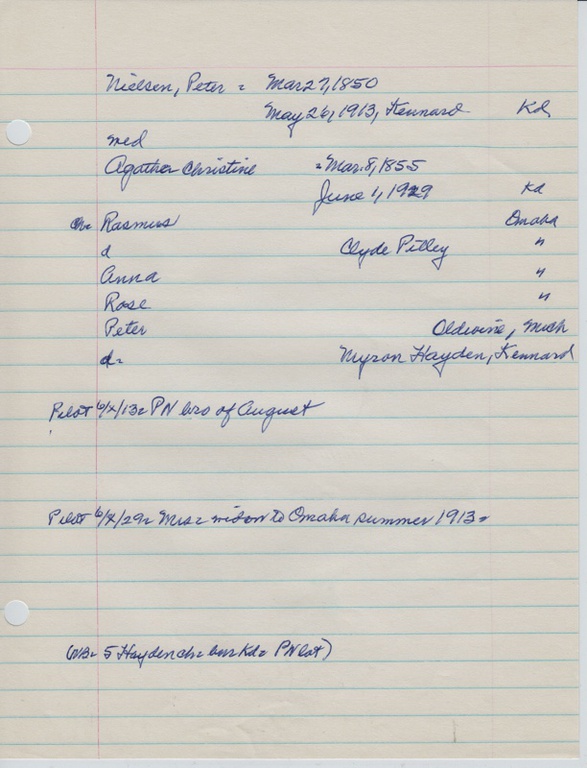 Nielsen, Peter = Mar 27, 1850
May 26, 1913, Kennard Kd
med
Agatha Christine = Mar. 8, 1855
June 1, 1929 Kd
ch= Rasmus Omaha
d Clyde Pitley "
Anna "
Rose "
Peter Oldwine, Mich
d= Myron Hayden, Kennard
Pilot 6/x/13= PN bro of August
Pilot 6/x/29= Mrs= widow to Omaha summer 1913=
(NB= 5 Hayden ch= bur Kd= PN lot)